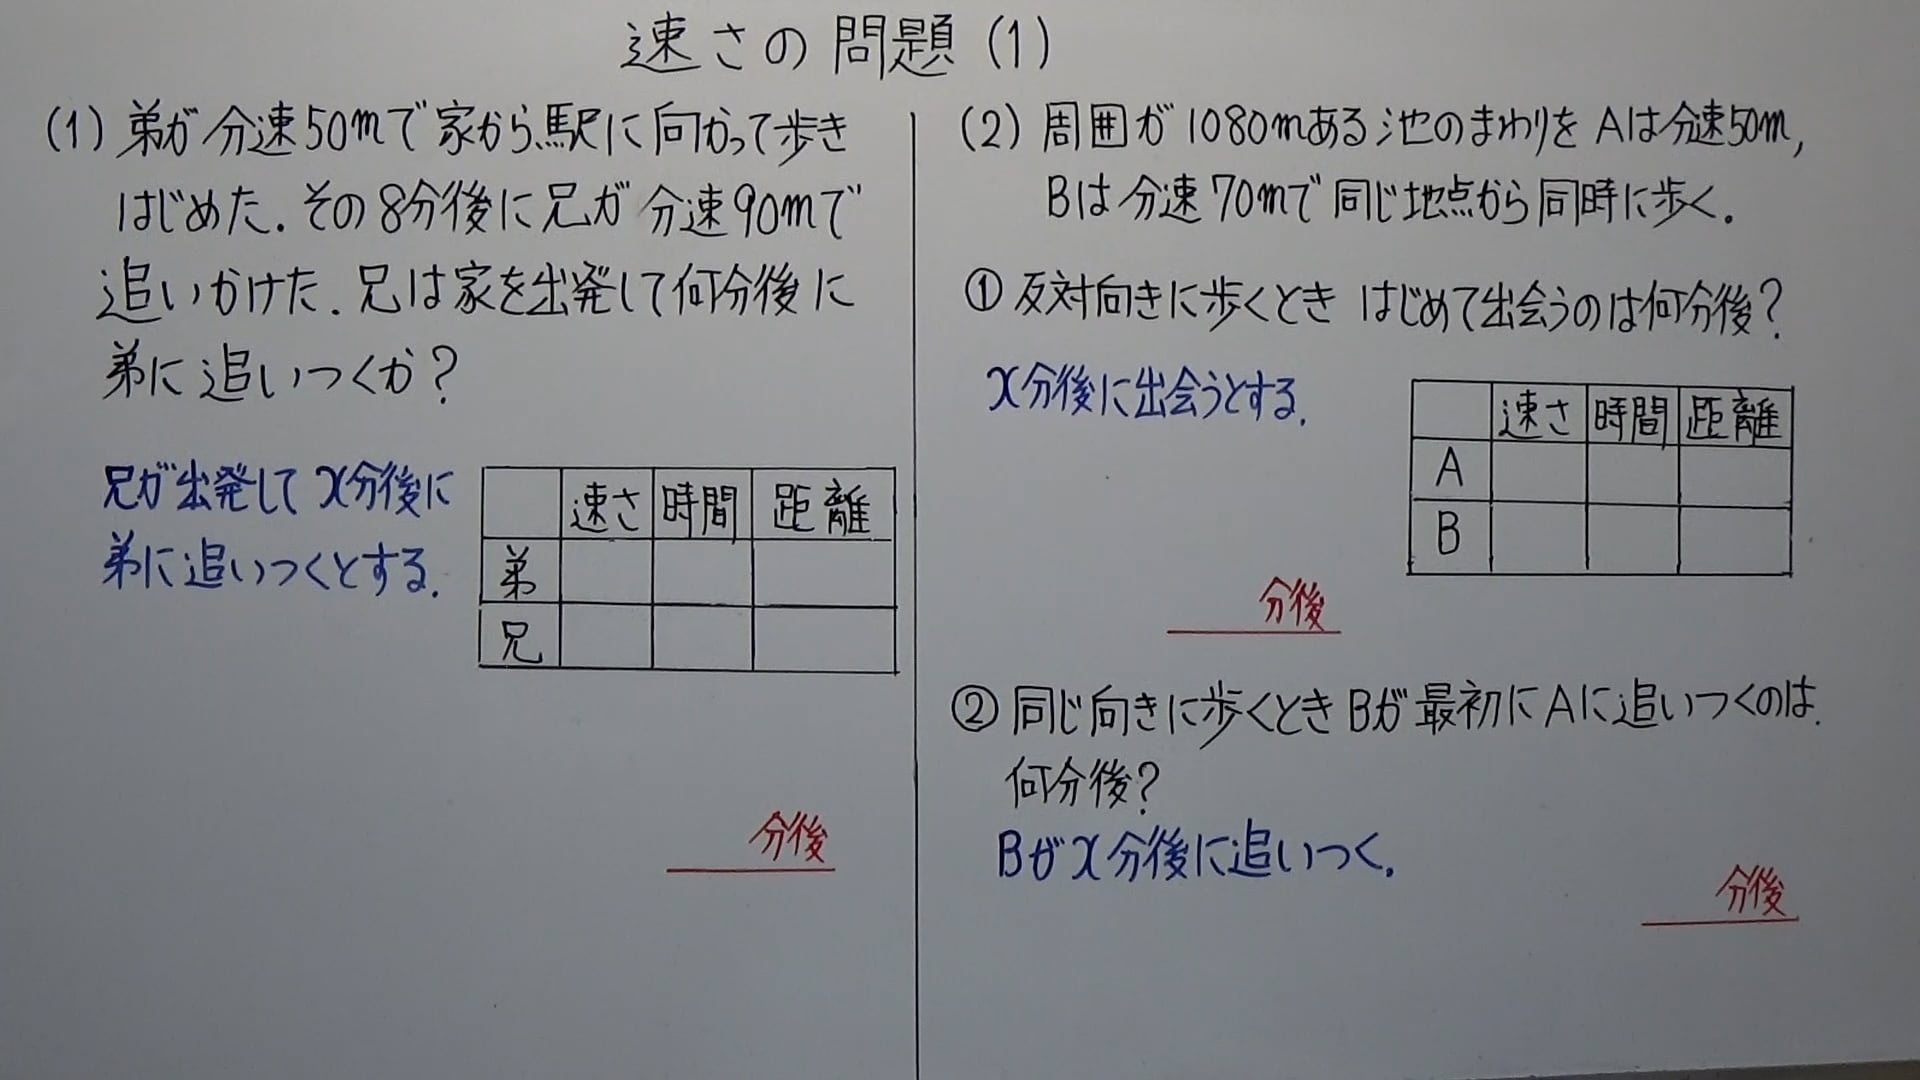 速さの問題(1)
(1) 弟が分速50mで家から駅に向かって歩き
はじめた.その8分後に兄が分速90mで
追いかけた.兄は家を出発して何分後に
弟に追いつくか?
兄が出発してx分後に
弟に追いつくとする.
速さ 時間 距離
弟
兄
分後
(2) 周囲が1080mある池のまわりをAは分速50m,
Bは分速70mで同じ地点から同時に歩く.
① 反対向きに歩くとき はじめて出会うのは何分後?
x分後に出会うとする.
速さ 時間 距離
A
B
分後
② 同じ向きに歩くときBが最初にAに追いつくのは.
何分後?
Bがx分後に追いつく.
分後